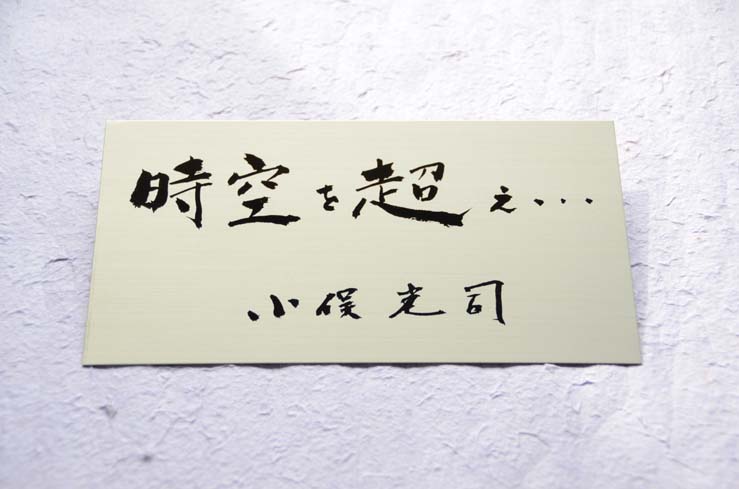 時空を超え・・・
小俣光司